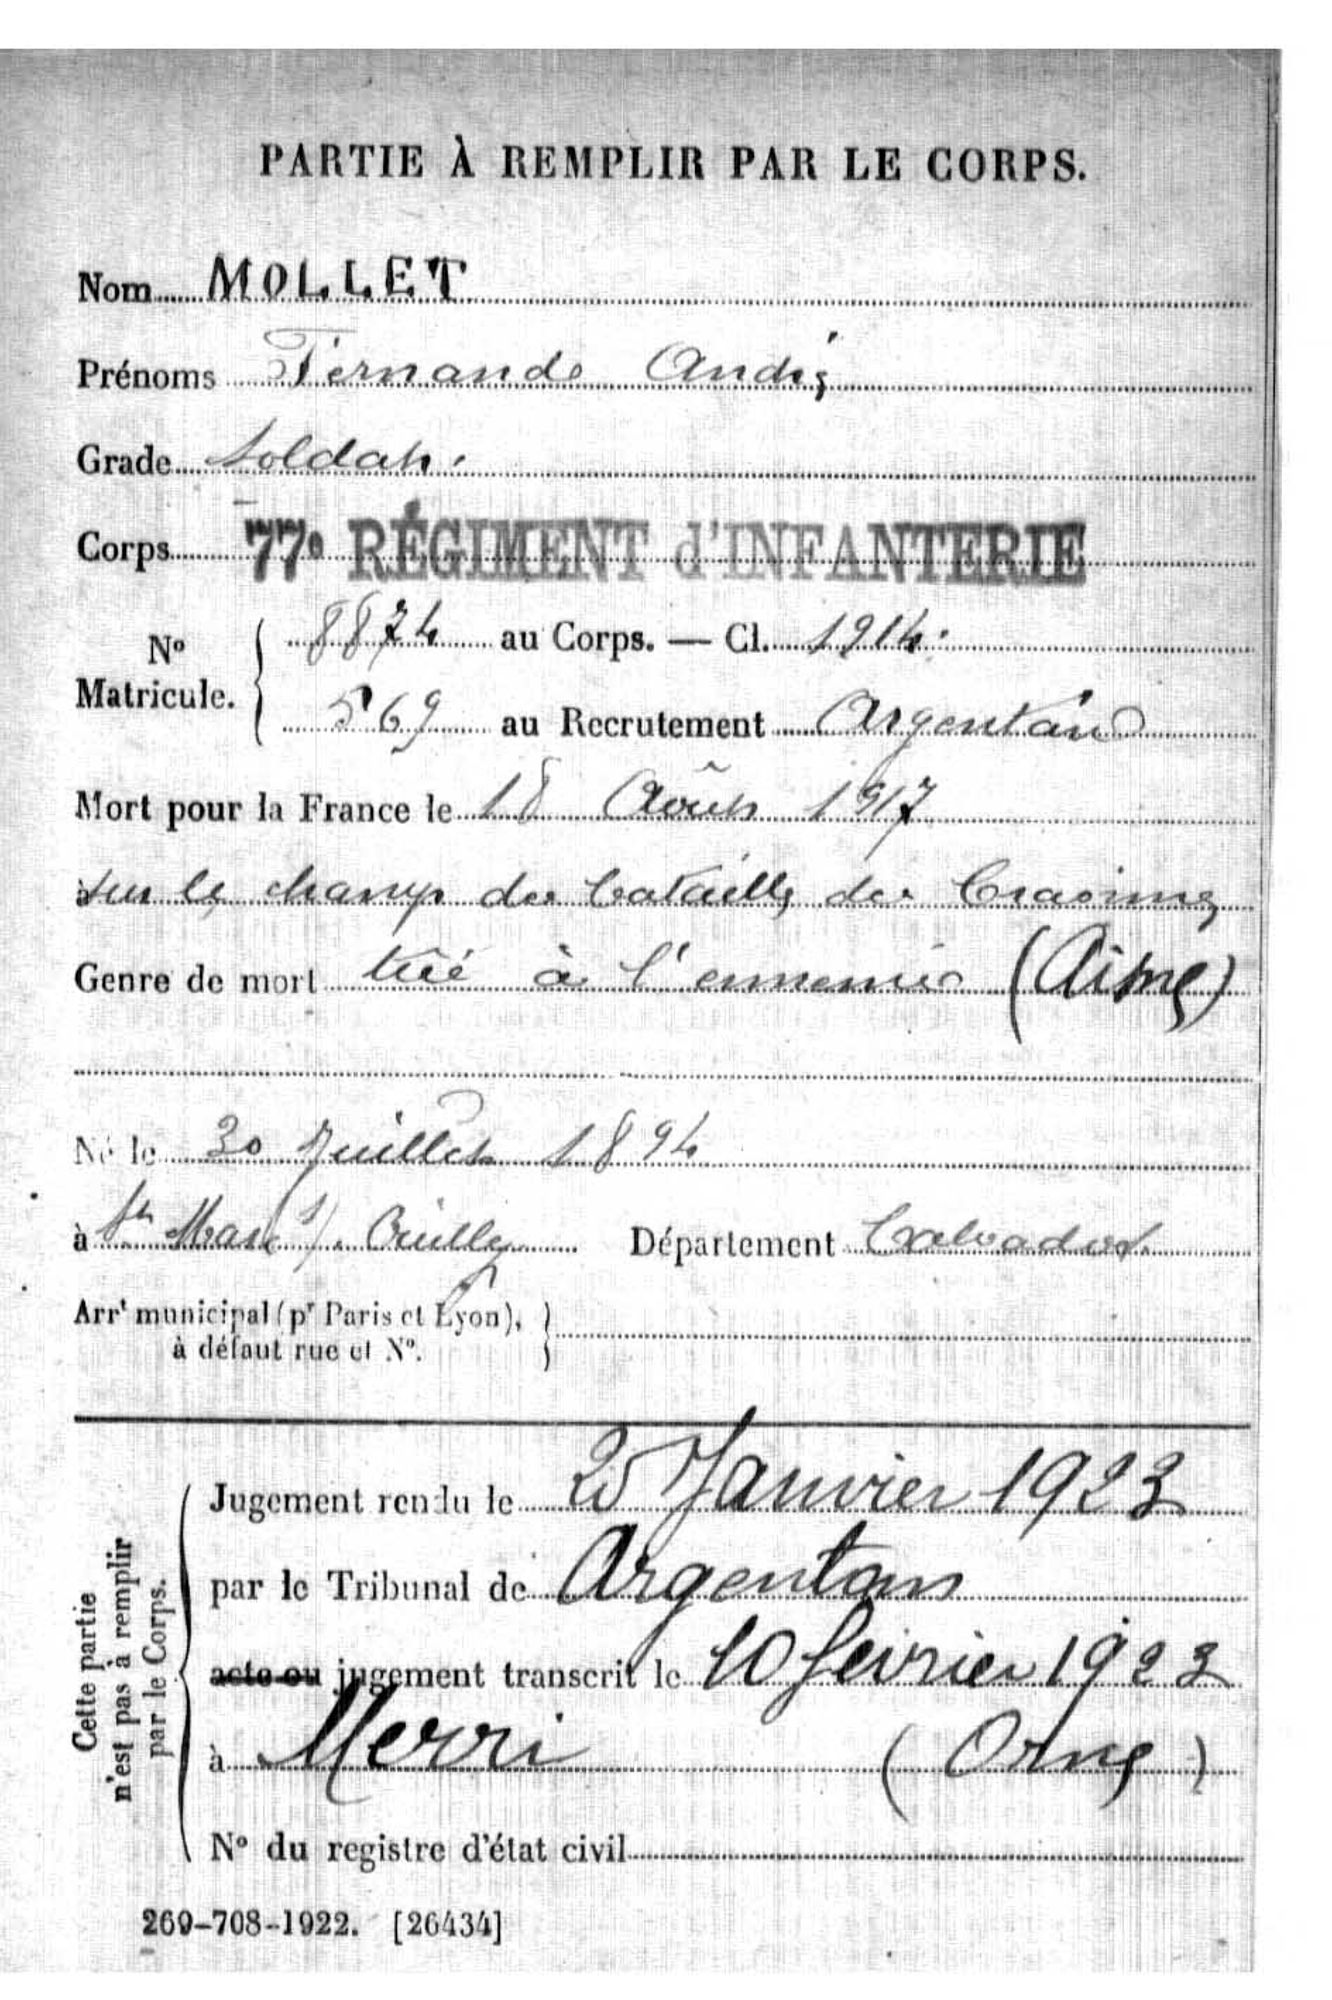 PARTIE À REMPLIR PAR LE CORPS.
Nom MOLLET
Prénoms Fernande André
Grade Soldat.
Corps 77e RÉGIMENT d'INFANTERIE
No Matricule. { 8874 au Corps. — Cl. 1914.
569 au Recrutement Argentan
Mort pour la France le 18 Août 1917
à sur le champ de bataille de Craonne
Genre de mort tué à l'ennemi (Aisne)
Né le 30 Juillet 1894
à St Marc s/. Ouilly Département Calvados.
Arrt municipal (pr Paris et Lyon),
à défaut rue et No. }
Cette partie n'est pas à remplir par le Corps.
Jugement rendu le 25 Janvier 1923
par le Tribunal de Argentan
acte ou jugement transcrit le 10 février 1923
à Merri (Orne)
No du registre d'état civil
269-708-1922. [26434]